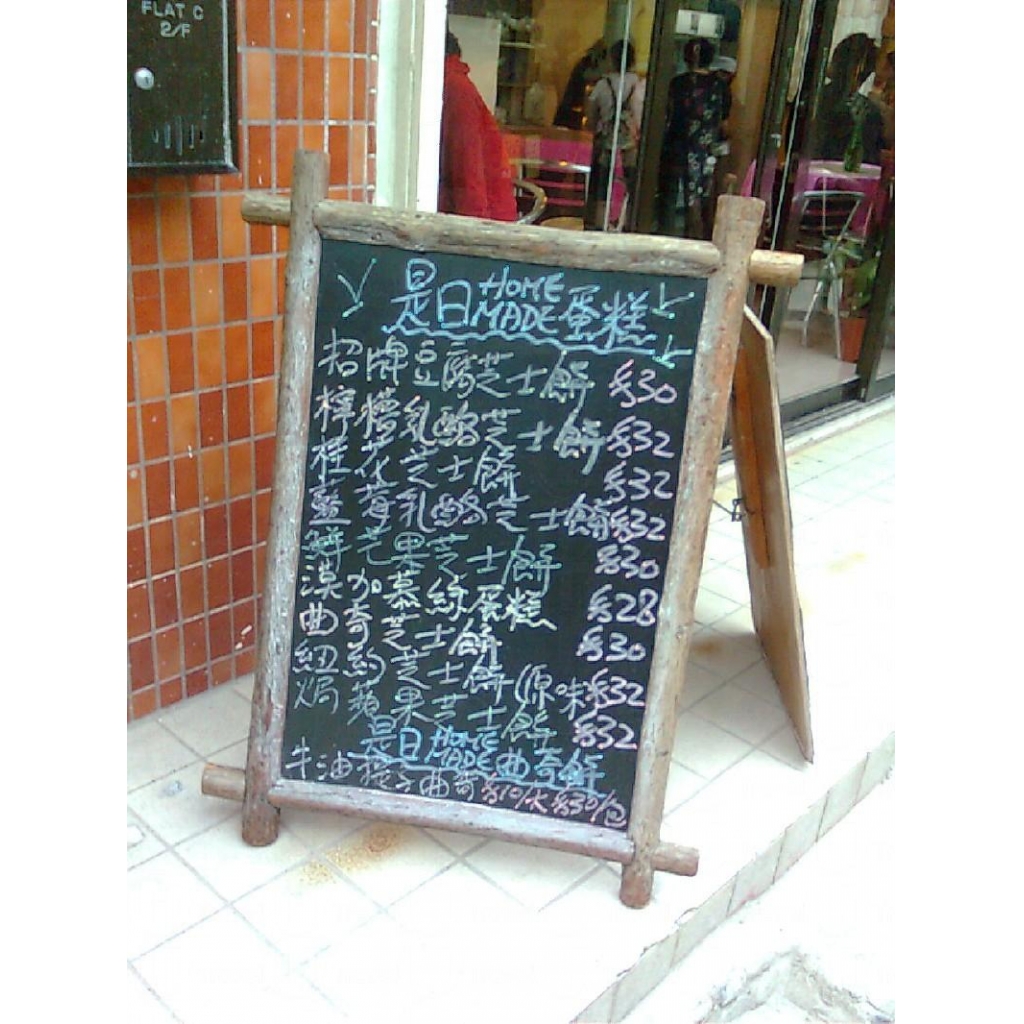 FLAT C
2/F
是日HOME MADE蛋糕
招牌豆腐芝士餅 $30
檸檬乳酪芝士餅 $32
桂花芝士餅 $32
藍莓乳酪芝士餅 $32
鮮芒果芝士餅 $30
漠加慕絲蛋糕 $28
曲奇芝士餅 $30
紐約芝士餅 原味 $32
焗蘋果芝士餅 $32
是日HOME MADE曲奇餅
牛油提子曲奇 $10/大 $30/包